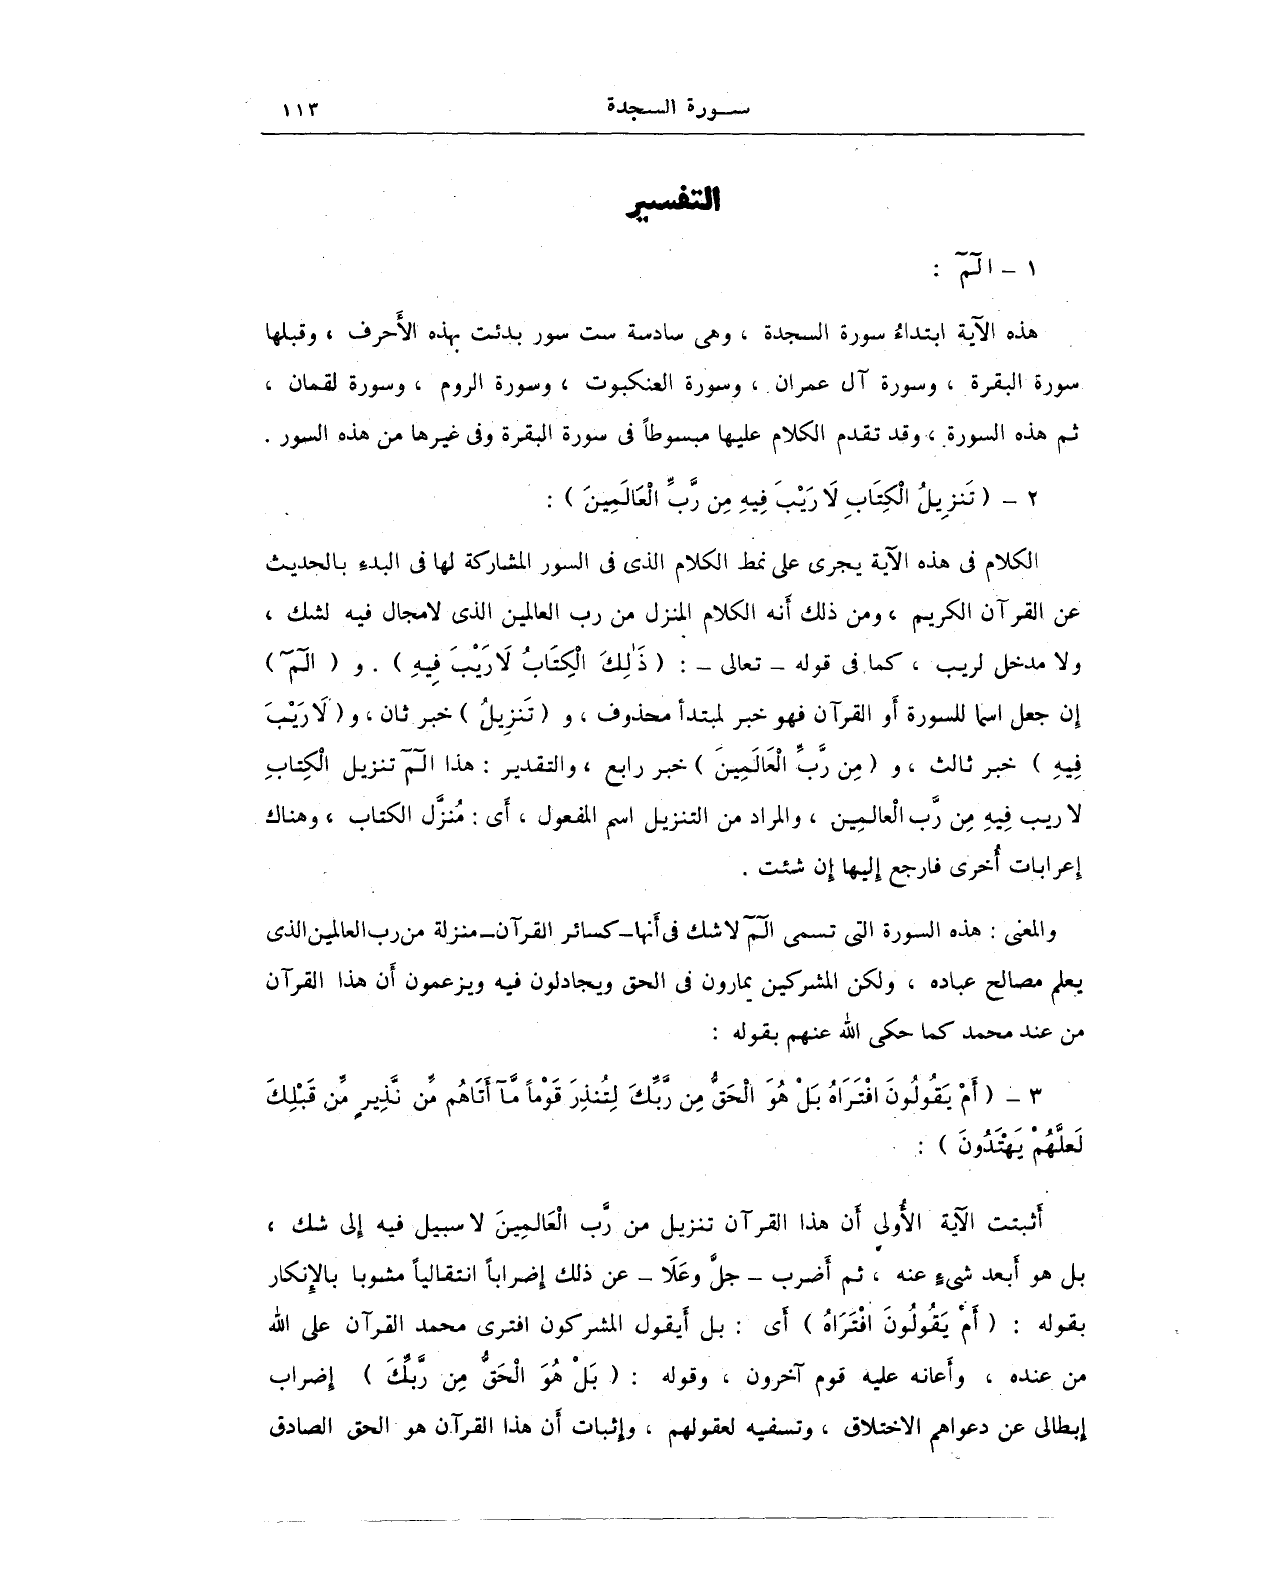 سورة السجدة ١١٣
التفسير
١ - الٓمٓ :
هذه الآية ابتداءُ سورة السجدة ، وهى سادسة ست سور بدئت بهذه الأَحرف ، وقبلها
سورة البقرة ، وسورة آل عمران ، وسورة العنكبوت ، وسورة الروم ، وسورة لقمان ،
ثم هذه السورة ، وقد تقدم الكلام عليها مبسوطاً فى سورة البقرة وفى غيرها من هذه السور .
٢ - ( تَنزِيلُ الْكِتَابِ لَا رَيْبَ فِيهِ مِن رَّبِّ الْعَالَمِينَ ) :
الكلام فى هذه الآية يجرى على نمط الكلام الذى فى السور المشاركة لها فى البدء بالحديث
عن القرآن الكريم ، ومن ذلك أَنه الكلام المنزل من رب العالمين الذى لامجال فيه لشك ،
ولا مدخل لريب ، كما فى قوله - تعالى - : ( ذَٰلِكَ الْكِتَابُ لَا رَيْبَ فِيهِ ) . و ( الٓمٓ )
إِن جعل اسما للسورة أَو القرآن فهو خبر لمبتدأ محذوف ، و ( تَنزِيلُ ) خبر ثان ، و ( لَا رَيْبَ
فِيهِ ) خبر ثالث ، و ( مِن رَّبِّ الْعَالَمِينَ ) خبر رابع ، والتقدير : هذا الٓمٓ تنزيل الْكِتابِ
لا ريب فِيهِ مِن رَّب الْعالمِين ، والمراد من التنزيل اسم المفعول ، أَى : مُنزَّل الكتاب ، وهناك
إِعرابات أُخرى فارجع إِليها إِن شئت .
والمعنى : هذه السورة التى تسمى الٓمٓ لاشك فى أَنها - كسائر القرآن - منزلة من رب العالمين الذى
يعلم مصالح عباده ، ولكن المشركين يمارون فى الحق ويجادلون فيه ويزعمون أَن هذا القرآن
من عند محمد كما حكى الله عنهم بقوله :
٣ - ( أَمْ يَقُولُونَ افْتَرَاهُ بَلْ هُوَ الْحَقُّ مِن رَّبِّكَ لِتُنذِرَ قَوْماً مَّآ أَتَاهُم مِّن نَّذِيرٍ مِّن قَبْلِكَ
لَعَلَّهُمْ يَهْتَدُونَ ) :
أَثبتت الآية الأُولى أَن هذا القرآن تنزيل من رَّب الْعَالمِينَ لا سبيل فيه إِلى شك ،
بل هو أَبعد شىءٍ عنه ، ثم أَضرب - جلَّ وعَلَا - عن ذلك إِضراباً انتقالياً مشوبا بالإِنكار
بقوله : ( أَمْ يَقُولُونَ افْتَرَاهُ ) أَى : بل أَيقول المشركون افترى محمد القرآن على الله
من عنده ، وأَعانه عليه قوم آخرون ، وقوله : ( بَلْ هُوَ الْحَقُّ مِن رَّبِّكَ ) إِضراب
إِبطالى عن دعواهم الاختلاق ، وتسفيه لعقولهم ، وإِثبات أَن هذا القرآن هو الحق الصادق